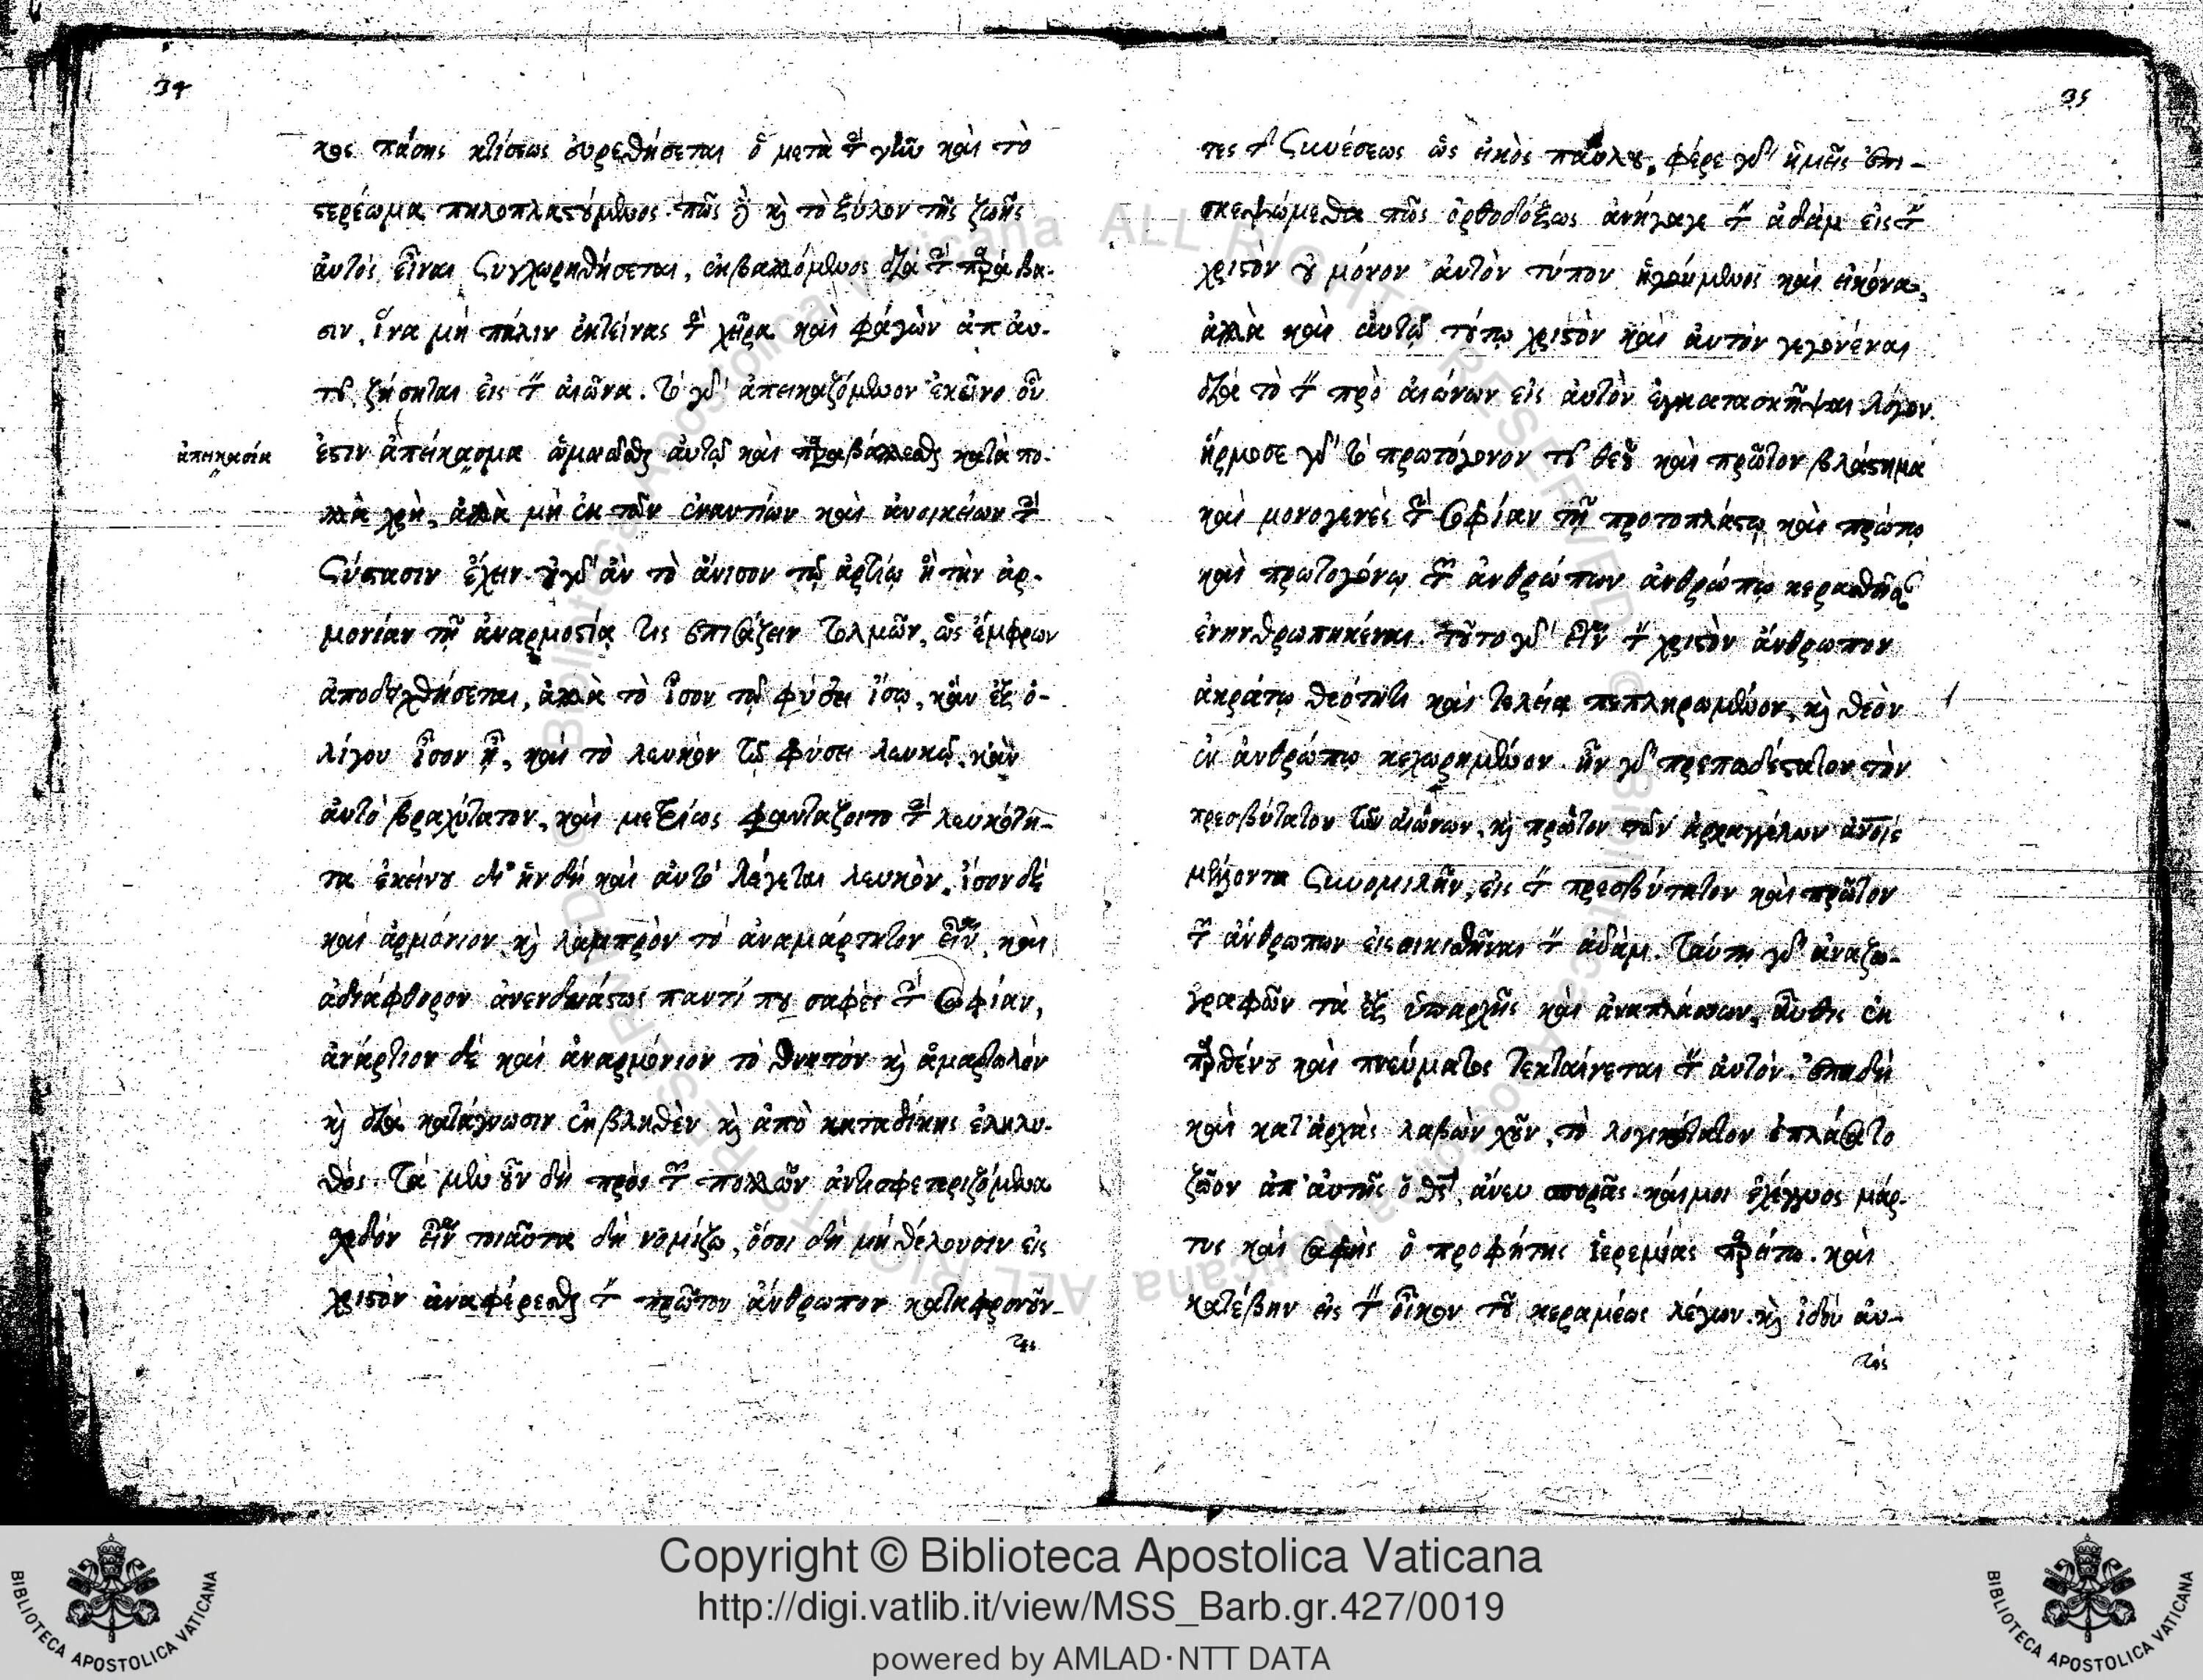 34
κος πάσης κτίσεως εὑρεθήσεται ὁ μετὰ τὴν γῆν καὶ τὸ
στερέωμα πηλοπλαστούμενος. πῶς δὲ καὶ τὸ ξύλον τῆς ζωῆς
αὐτὸς εἶναι συγχωρηθήσεται, ἐκβαλλόμενος διὰ τὴν παράβα-
σιν, ἵνα μὴ πάλιν ἐκτείνας τὴν χεῖρα καὶ φαγὼν ἀπ' αὐ-
τοῦ ζήσηται εἰς τὸν αἰῶνα. τὸ γὰρ ἀπεικαζόμενον ἐκεῖνο οὗ
ἀπεικασία
ἐστιν ἀπείκασμα ὡμοιῶσθαι αὐτῷ καὶ παραβάλλεσθαι κατὰ πο-
λλὰ χρὴ, ἀλλὰ μὴ ἐκ τῶν ἐναντίων καὶ ἀνοικείων τὴν
σύστασιν ἔχειν. οὐ γὰρ ἂν τὸ ἄνισον τῷ ἀρτίῳ ἢ τὴν ἁρ-
μονίαν τῇ ἀναρμοστίᾳ τις ἐπισάζειν τολμῶν, ὡς ἔμφρων
ἀποδειχθήσεται, ἀλλὰ τὸ ἶσον τῷ φύσει ἴσῳ, κἂν ἐξ ὀ-
λίγου ἶσον ᾖ, καὶ τὸ λευκὸν τῷ φύσει λευκῷ. κἂν
αὐτὸ βραχύτατον, καὶ μετρίως φαντάζοιτο τὴν λευκότη-
τα ἐκείνου δι' ἣν δὴ καὶ αὐτὸ λέγεται λευκὸν. ἴσον δὲ
καὶ ἁρμόνιον καὶ λαμπρὸν τὸ ἀναμάρτητον εἶναι, καὶ
ἀδιάφθορον ἀνενδοιάστως παντί που σαφὲς τὴν σοφίαν,
ἀνάρτιον δὲ καὶ ἀναρμόνιον τὸ θνητὸν καὶ ἁμαρτωλὸν
καὶ διὰ κατάγνωσιν ἐκβληθὲν καὶ ἀπὸ καταδίκης ἐληλυ-
θός. τὰ μὲν οὖν δὴ πρὸς τῶν πολλῶν ἀντισφετεριζόμενα
σχεδὸν εἶναι τοιαῦτα δὴ νομίζω, ὅσοι δὴ μὴ θέλουσιν εἰς
χριστὸν ἀναφέρεσθαι τὸν πρῶτον ἄνθρωπον καταφρονοῦν-
τες
35
τες τῆς συνέσεως ὡς εἰκὸς παύλου. φέρε γὰρ ἡμεῖς ἐπι-
σκεψώμεθα πῶς ὀρθοδόξως ἀνήγαγε τὸν ἀδὰμ εἰς τὸν
χριστὸν οὐ μόνον αὐτὸν τύπον ἡγούμενος καὶ εἰκόνα,
ἀλλὰ καὶ αὐτῷ τούτῳ χριστὸν καὶ αὐτὸν γεγονέναι
διὰ τὸ τὸν πρὸ αἰώνων εἰς αὐτὸν ἐγκατασκῆψαι λόγον.
ἥρμοσε γὰρ τὸ πρωτόγονον τοῦ θεοῦ καὶ πρῶτον βλάστημα
καὶ μονογενὲς τὴν σοφίαν τῷ προτοπλάστῳ καὶ πρώτῳ
καὶ πρωτογόνῳ τῶν ἀνθρώπων ἀνθρώπῳ κερασθεῖσαν
ἐνηνθρωπηκέναι. τοῦτο γὰρ εἶναι τὸν χριστὸν ἄνθρωπον
ἀκράτῳ θεότητι καὶ τελείᾳ πεπληρωμένον, καὶ θεὸν
ἐν ἀνθρώπῳ κεχωρημένον. ἦν γὰρ πρεπωδέστατον τὸν
πρεσβύτατον τῶν αἰώνων, καὶ πρῶτον τῶν ἀρχαγγέλων ἀνοις
μέλλοντα συνομιλεῖν, εἰς τὸν πρεσβύτατον καὶ πρῶτον
τῶν ἀνθρωπων εἰσοικισθῆναι τὸν ἀδὰμ. ταύτῃ γὰρ ἀναζω-
γραφῶν τὰ ἐξ ὑπαρχῆς καὶ ἀναπλάσσων, αὖθις ἐκ
παρθένου καὶ πνεύματος τεκταίνεται τὸν αὐτόν. ἐπειδὴ
καὶ κατ' ἀρχὰς λαβὼν χοῦν, τὸ λογικώτατον ἐπλάσατο
ζῶον ἀπ' αὐτῆς ὁ θς, ἄνευ σπορᾶς. καί μοι ἐχέγγυος μάρ-
τυς καὶ σαφὴς ὁ προφήτης ἱερεμίας παρίτω. καὶ
κατέβην εἰς τὸν οἶκον τοῦ κεραμέως λέγων. καὶ ἰδοὺ αὐ-
τός
Copyright © Biblioteca Apostolica Vaticana
http://digi.vatlib.it/view/MSS_Barb.gr.427/0019
powered by AMLAD·NTT DATA
BIBLIOTECA APOSTOLICA VATICANA
BIBLIOTECA APOSTOLICA VATICANA